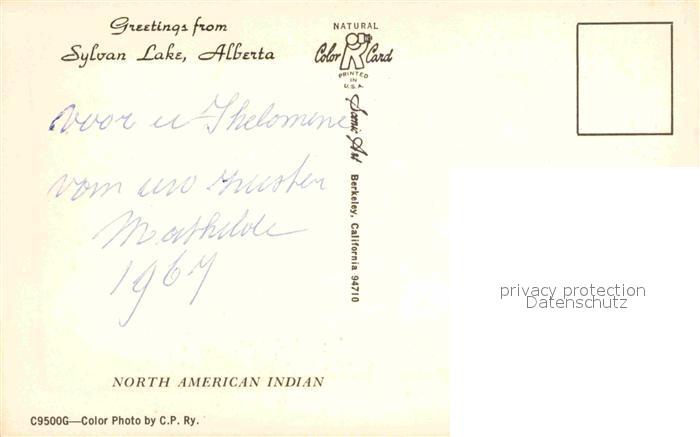 Greetings from
Sylvan Lake, Alberta
NATURAL
Color Card
PRINTED
IN
U.S.A.
Scenic Art Berkeley, California 94710
voor u Thelomene
vom uw zuster
Mathilde
1967
privacy protection
Datenschutz
NORTH AMERICAN INDIAN
C9500G—Color Photo by C.P. Ry.